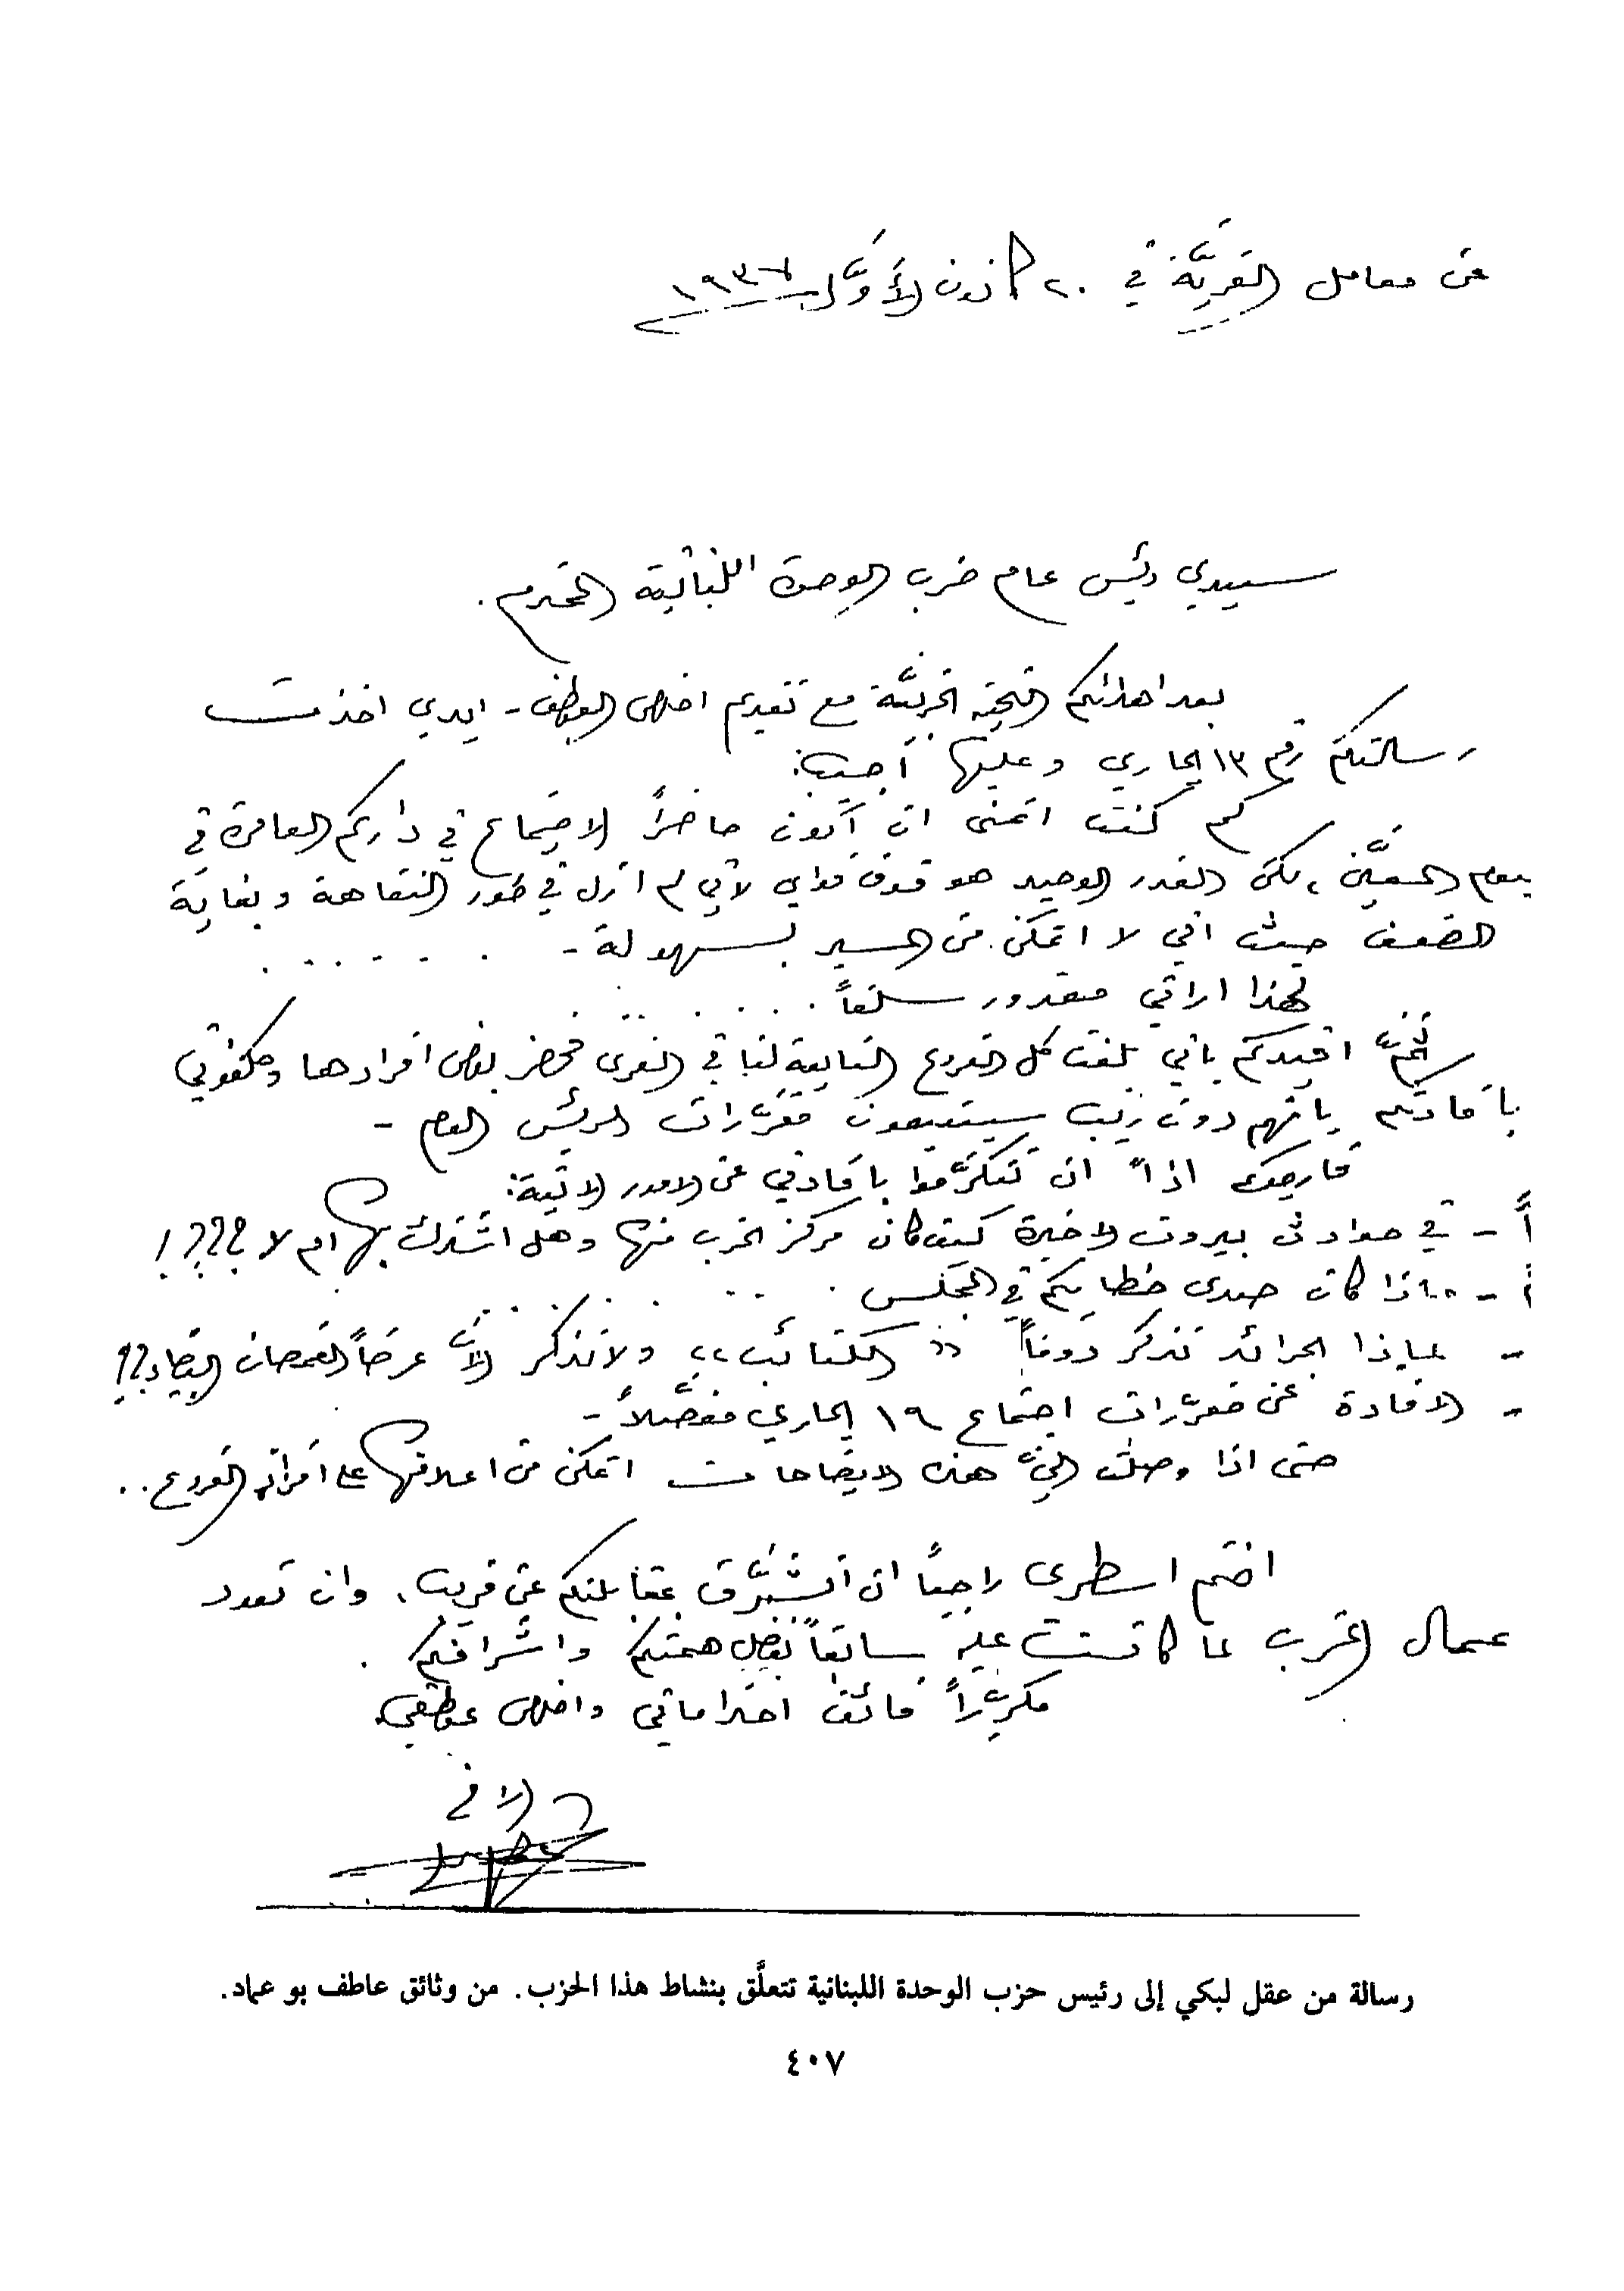 من معامل القريَّة في ٢٠ كانون الأوَّل ١٩٣٦
سيدي رئيس عام حزب الوحدة اللبنانية المحترم.
بعد اهدائكم التحية الحزبيَّة مع تقديم اخلص العواطف - ايدي اخذت
رسالتكم رقم ١٣ الجاري وعليها أجيب:
كم كنت اتمنى ان أكون حاضراً الاجتماع في داركم العامرة في
اليوم المعيَّن، لكن القدر الوحيد هو فوق قواي لأني لم ازل في طور النقاهة وبغاية
الضعف حيث اني لا اتمكن من السير بسهولة -
لهذا اراني معذور سلفاً
ثمَّ افيدكم باني بلغت كل الفروع التابعة لنا في القرى فحضر بعض افرادها وكلفوني
بافادتكم بانهم دون ريب سيتبعون مقرّرات الرئيس العام -
فارجوك اذاً ان تتكرَّموا بافادتي عن الامور الاتية:
أً - في حوادث بيروت الاخيرة كيف كان مركز الحزب منها وهل اشترك بها ام لا ؟؟؟!
أ - ماذا كان صدى خطابكم في المجلس
- لماذا الجرائد تذكر دوماً «الكتائب» ولا تذكر الآن عرضاً القمصان البيضاء؟؟
- الافادة عن مقرّرات اجتماع ١٩ الجاري مفصَّلاً -
حتى اذا وصلت اليّ هذه الايضاحات اتمكن من اعلانها على افراد الفروع..
اختم اسطري راجياً ان أتشرَّف بمقابلتكم عن قريب. وان تعود
عمال الحزب لما كانت عليه سابقاً بفضل همتكم واشرافكم.
مكرّراً فائق احتراماتي واخلص عواطفي.
الاخ
رسالة من عقل لبكي إلى رئيس حزب الوحدة اللبنانية تتعلَّق بنشاط هذا الحزب. من وثائق عاطف بو عماد.
٤٠٧